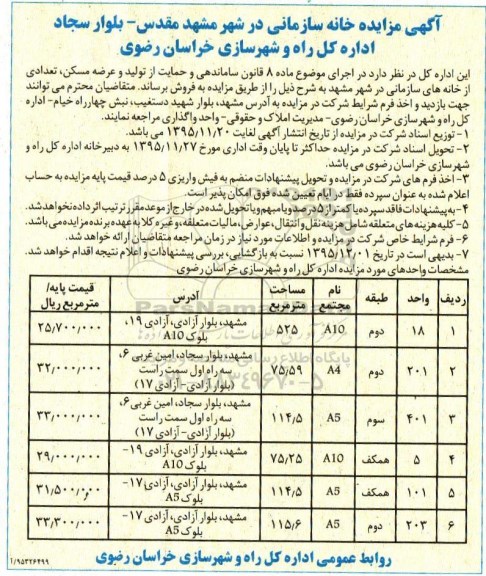 آگهی مزایده خانه سازمانی در شهر مشهد مقدس- بلوار سجاد
اداره کل راه و شهرسازی خراسان رضوی
این اداره کل در نظر دارد در اجرای موضوع ماده ۸ قانون ساماندهی و حمایت از تولید و عرضه مسکن، تعدادی
از خانه های سازمانی در شهر مشهد به شرح ذیل را از طریق مزایده به فروش برساند. متقاضیان محترم می توانند
جهت بازدید و اخذ فرم شرایط شرکت در مزایده به آدرس مشهد، بلوار شهید دستغیب، نبش چهارراه خیام- اداره
کل راه و شهرسازی خراسان رضوی- مدیریت املاک و حقوقی- واحد واگذاری مراجعه نمایند.
۱- توزیع اسناد شرکت در مزایده از تاریخ انتشار آگهی لغایت ۱۳۹۵/۱۱/۲۰ می باشد.
۲- تحویل اسناد شرکت در مزایده حداکثر تا پایان وقت اداری مورخ ۱۳۹۵/۱۱/۲۷ به دبیرخانه اداره کل راه و
شهرسازی خراسان رضوی می باشد.
۳- اخذ فرم های شرکت در مزایده و تحویل پیشنهادات منضم به فیش واریزی ۵ درصد قیمت پایه مزایده به حساب
اعلام شده به عنوان سپرده فقط در ایام تعیین شده فوق امکان پذیر است.
۴- به پیشنهادات فاقد سپرده یا کمتر از ۵ درصد و یا مبهم و یا تحویل شده در خارج از موعد مقرر ترتیب اثر داده نخواهد شد.
۵- کلیه هزینه های متعلقه شامل هزینه نقل و انتقال، عوارض، مالیات متعلقه، و غیره کلا به عهده برنده مزایده می باشد.
۶- فرم شرایط خاص شرکت در مزایده و اطلاعات مورد نیاز در زمان مراجعه متقاضیان ارائه خواهد شد.
۷- بدیهی است در تاریخ ۱۳۹۵/۱۲/۰۱ نسبت به بازگشایی، بررسی پیشنهادات و اعلام نتیجه اقدام خواهد شد.
مشخصات واحدهای مورد مزایده اداره کل راه و شهرسازی خراسان رضوی
ردیف واحد طبقه نام مجتمع مساحت مترمربع آدرس قیمت پایه/ مترمربع ریال
۱ ۱۸ دوم A10 ۵۲۵ مشهد، بلوار آزادی، آزادی ۱۹، بلوک A10 ۲۵/۷۰۰/۰۰۰
۲ ۲۰۱ دوم A4 ۷۵/۵۹ مشهد، بلوار سجاد، امین غربی ۶، سه راه اول سمت راست (بلوار آزادی- آزادی ۱۷) ۳۲/۰۰۰/۰۰۰
۳ ۴۰۱ سوم A5 ۱۱۴/۵ مشهد، بلوار سجاد، امین غربی ۶، سه راه اول سمت راست (بلوار آزادی- آزادی ۱۷) ۳۳/۰۰۰/۰۰۰
۴ ۵ همکف A10 ۷۵/۲۵ مشهد، بلوار آزادی، آزادی ۱۹- بلوک A10 ۲۹/۰۰۰/۰۰۰
۵ ۱۰۱ همکف A5 ۱۱۴/۵ مشهد، بلوار آزادی، آزادی ۱۷- بلوک A5 ۳۱/۵۰۰/۰۰۰
۶ ۲۰۳ دوم A5 ۱۱۵/۶ مشهد، بلوار آزادی، آزادی ۱۷- بلوک A5 ۳۳/۳۰۰/۰۰۰
روابط عمومی اداره کل راه و شهرسازی خراسان رضوی
۱/۹۵۳۲۶۴۹۹